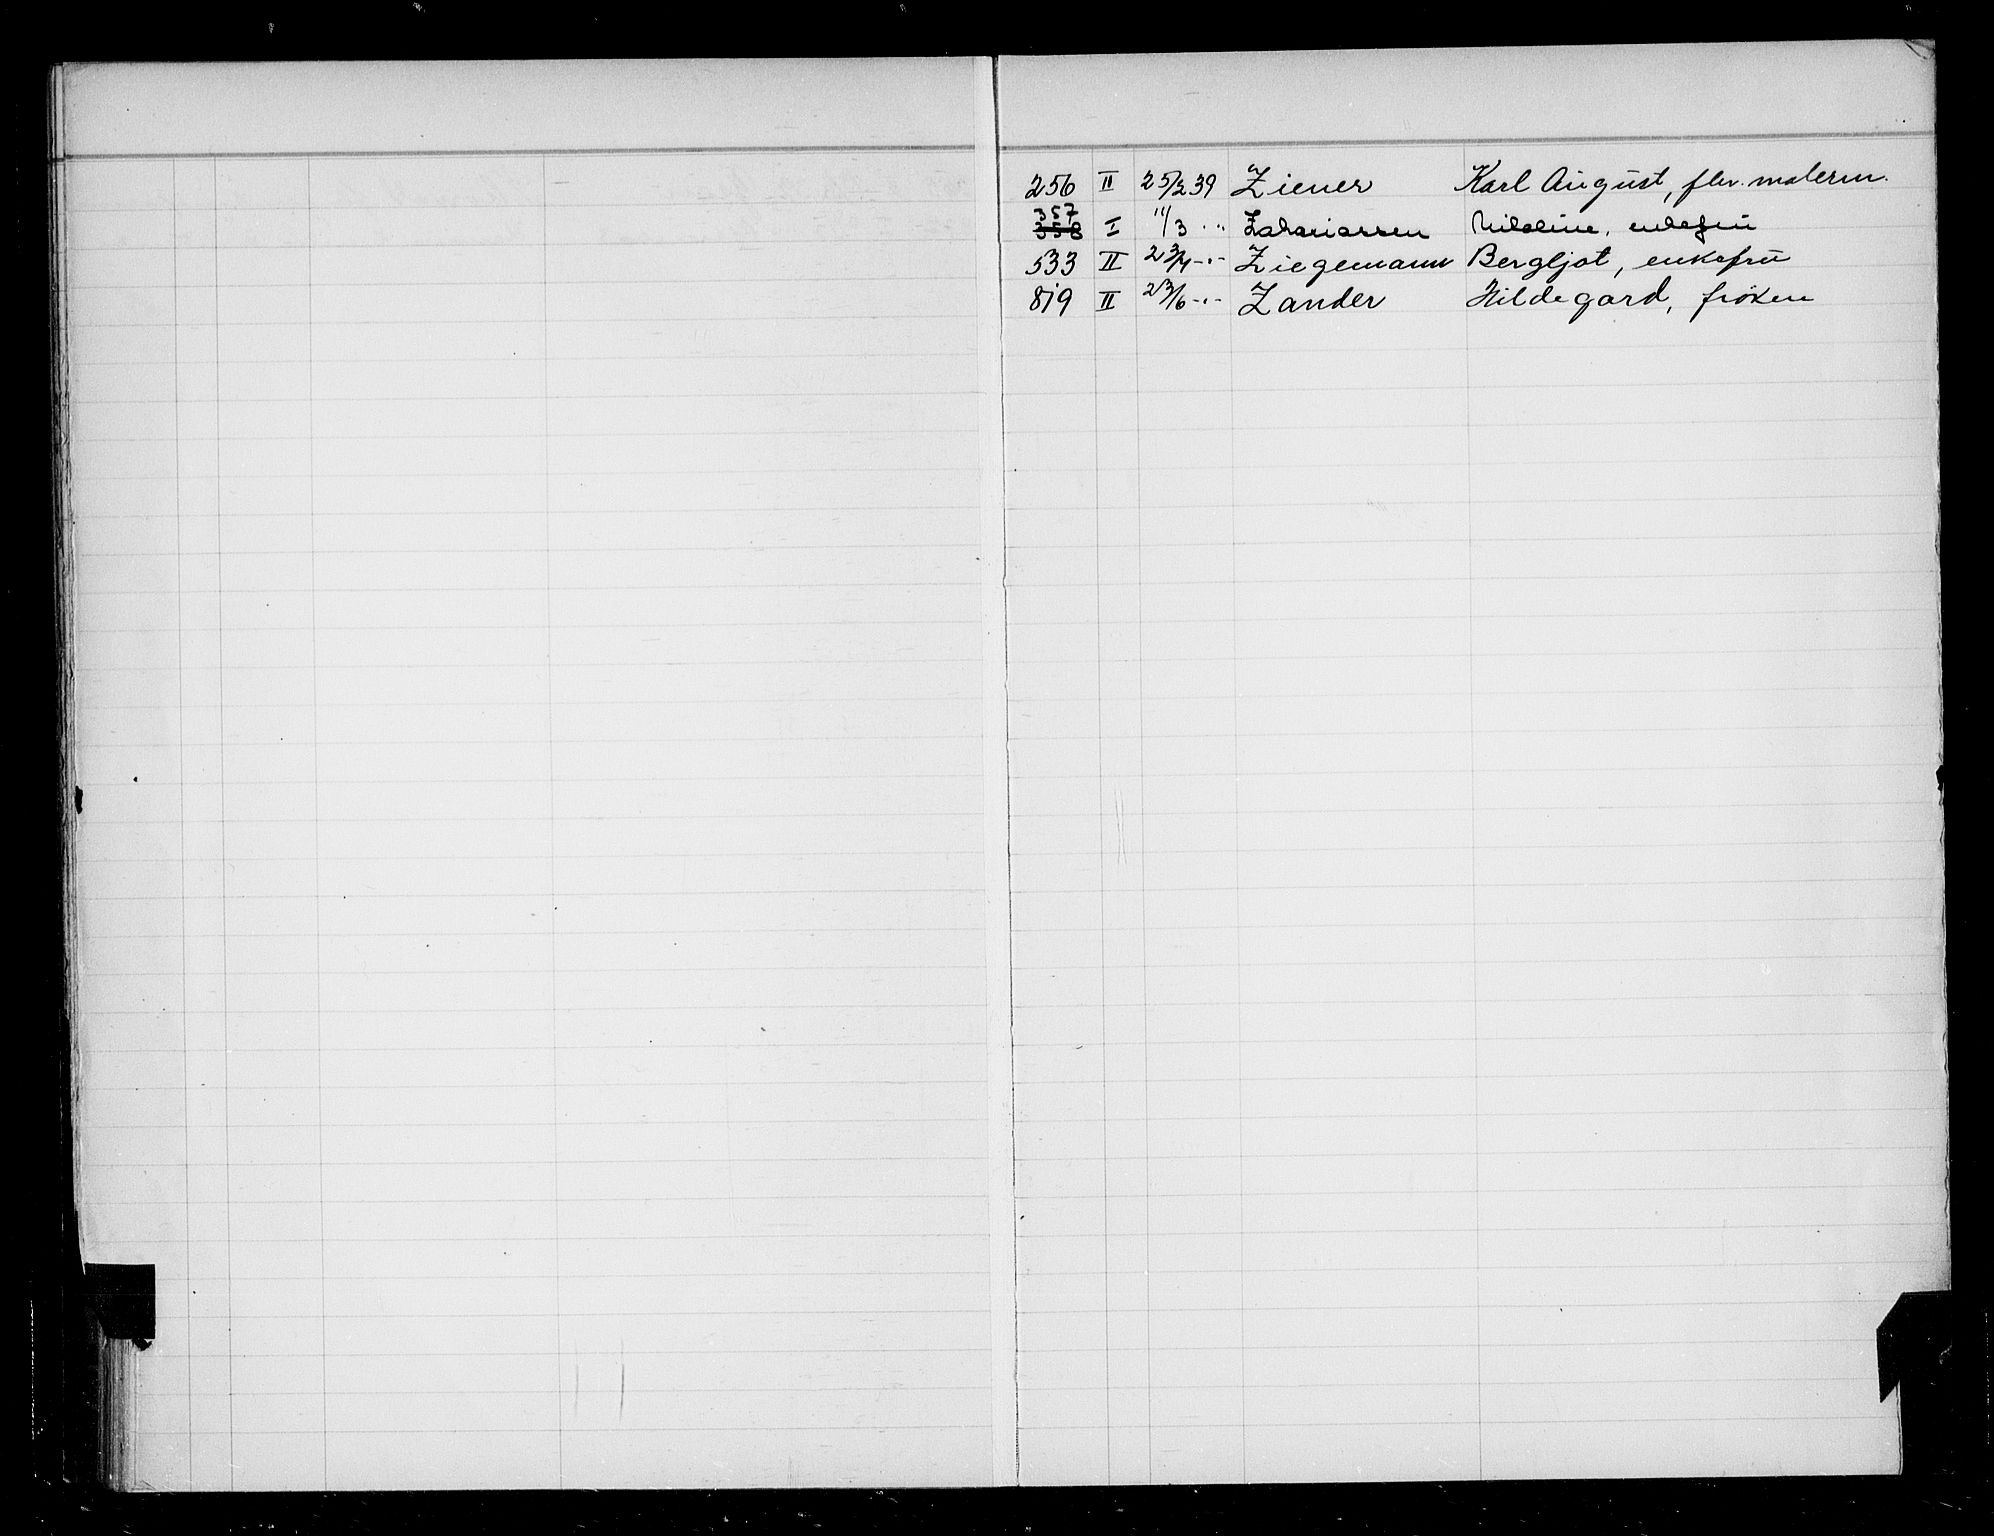 256 II 25/2 39 Ziener Karl August, flv. malerm.
357
358 I 11/3 - " - Zahariassen Nikoline, enkefru
533 II 23/4 - " - Ziegemann Bergljot, enkefru
819 II 23/6 - " - Zander Hildegard, frøken